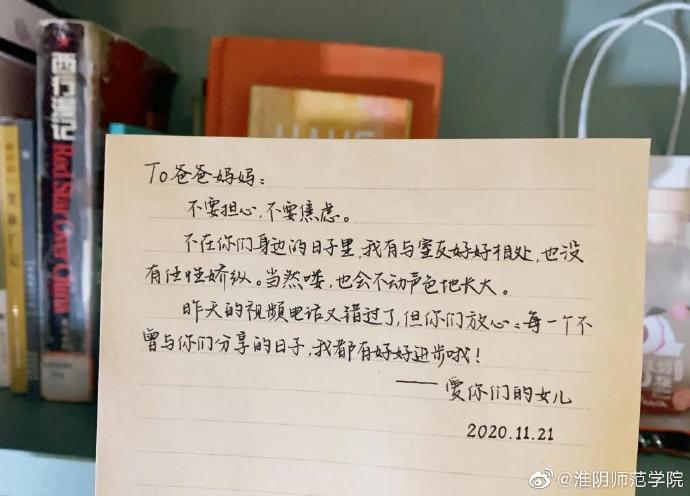 西行漫记
Red Star Over China
HAVE
To爸爸妈妈:
不要担心,不要焦虑。
不在你们身边的日子里,我有与室友好好相处,也没
有任性娇纵。当然喽,也会不动声色地长大。
昨天的视频电话又错过了,但你们放心:每一个不
曾与你们分享的日子,我都有好好进步哦!
——爱你们的女儿
2020.11.21
@淮阴师范学院